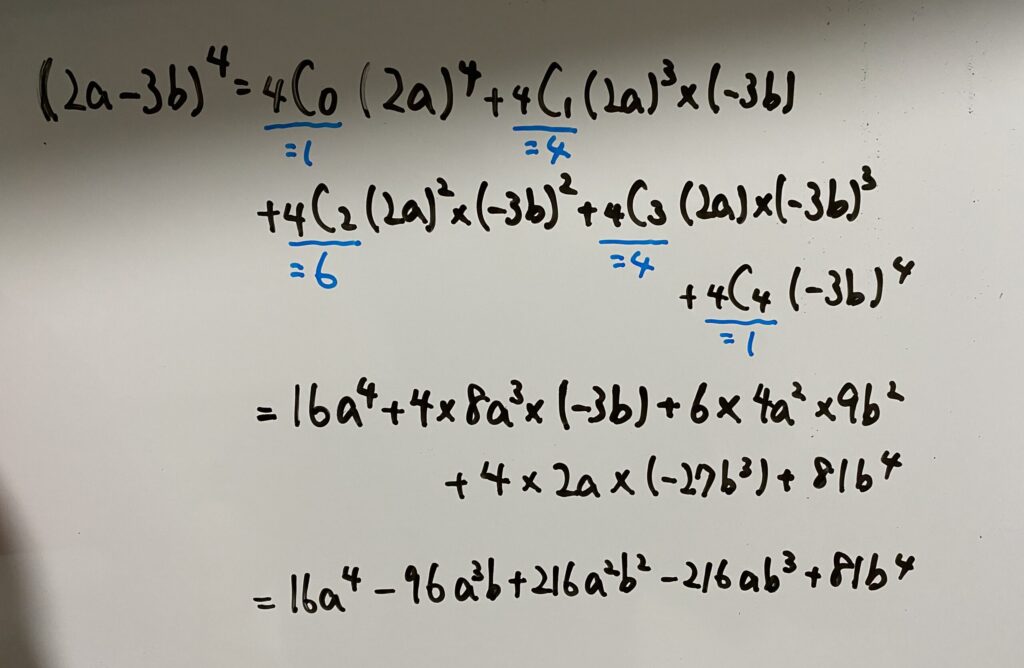 (2a-3b)⁴=₄C₀(2a)⁴+₄C₁(2a)³×(-3b)
=1 =4
+₄C₂(2a)²×(-3b)²+₄C₃(2a)×(-3b)³
=6 =4
+₄C₄(-3b)⁴
=1
=16a⁴+4×8a³×(-3b)+6×4a²×9b²
+4×2a×(-27b³)+81b⁴
=16a⁴-96a³b+216a²b²-216ab³+81b⁴